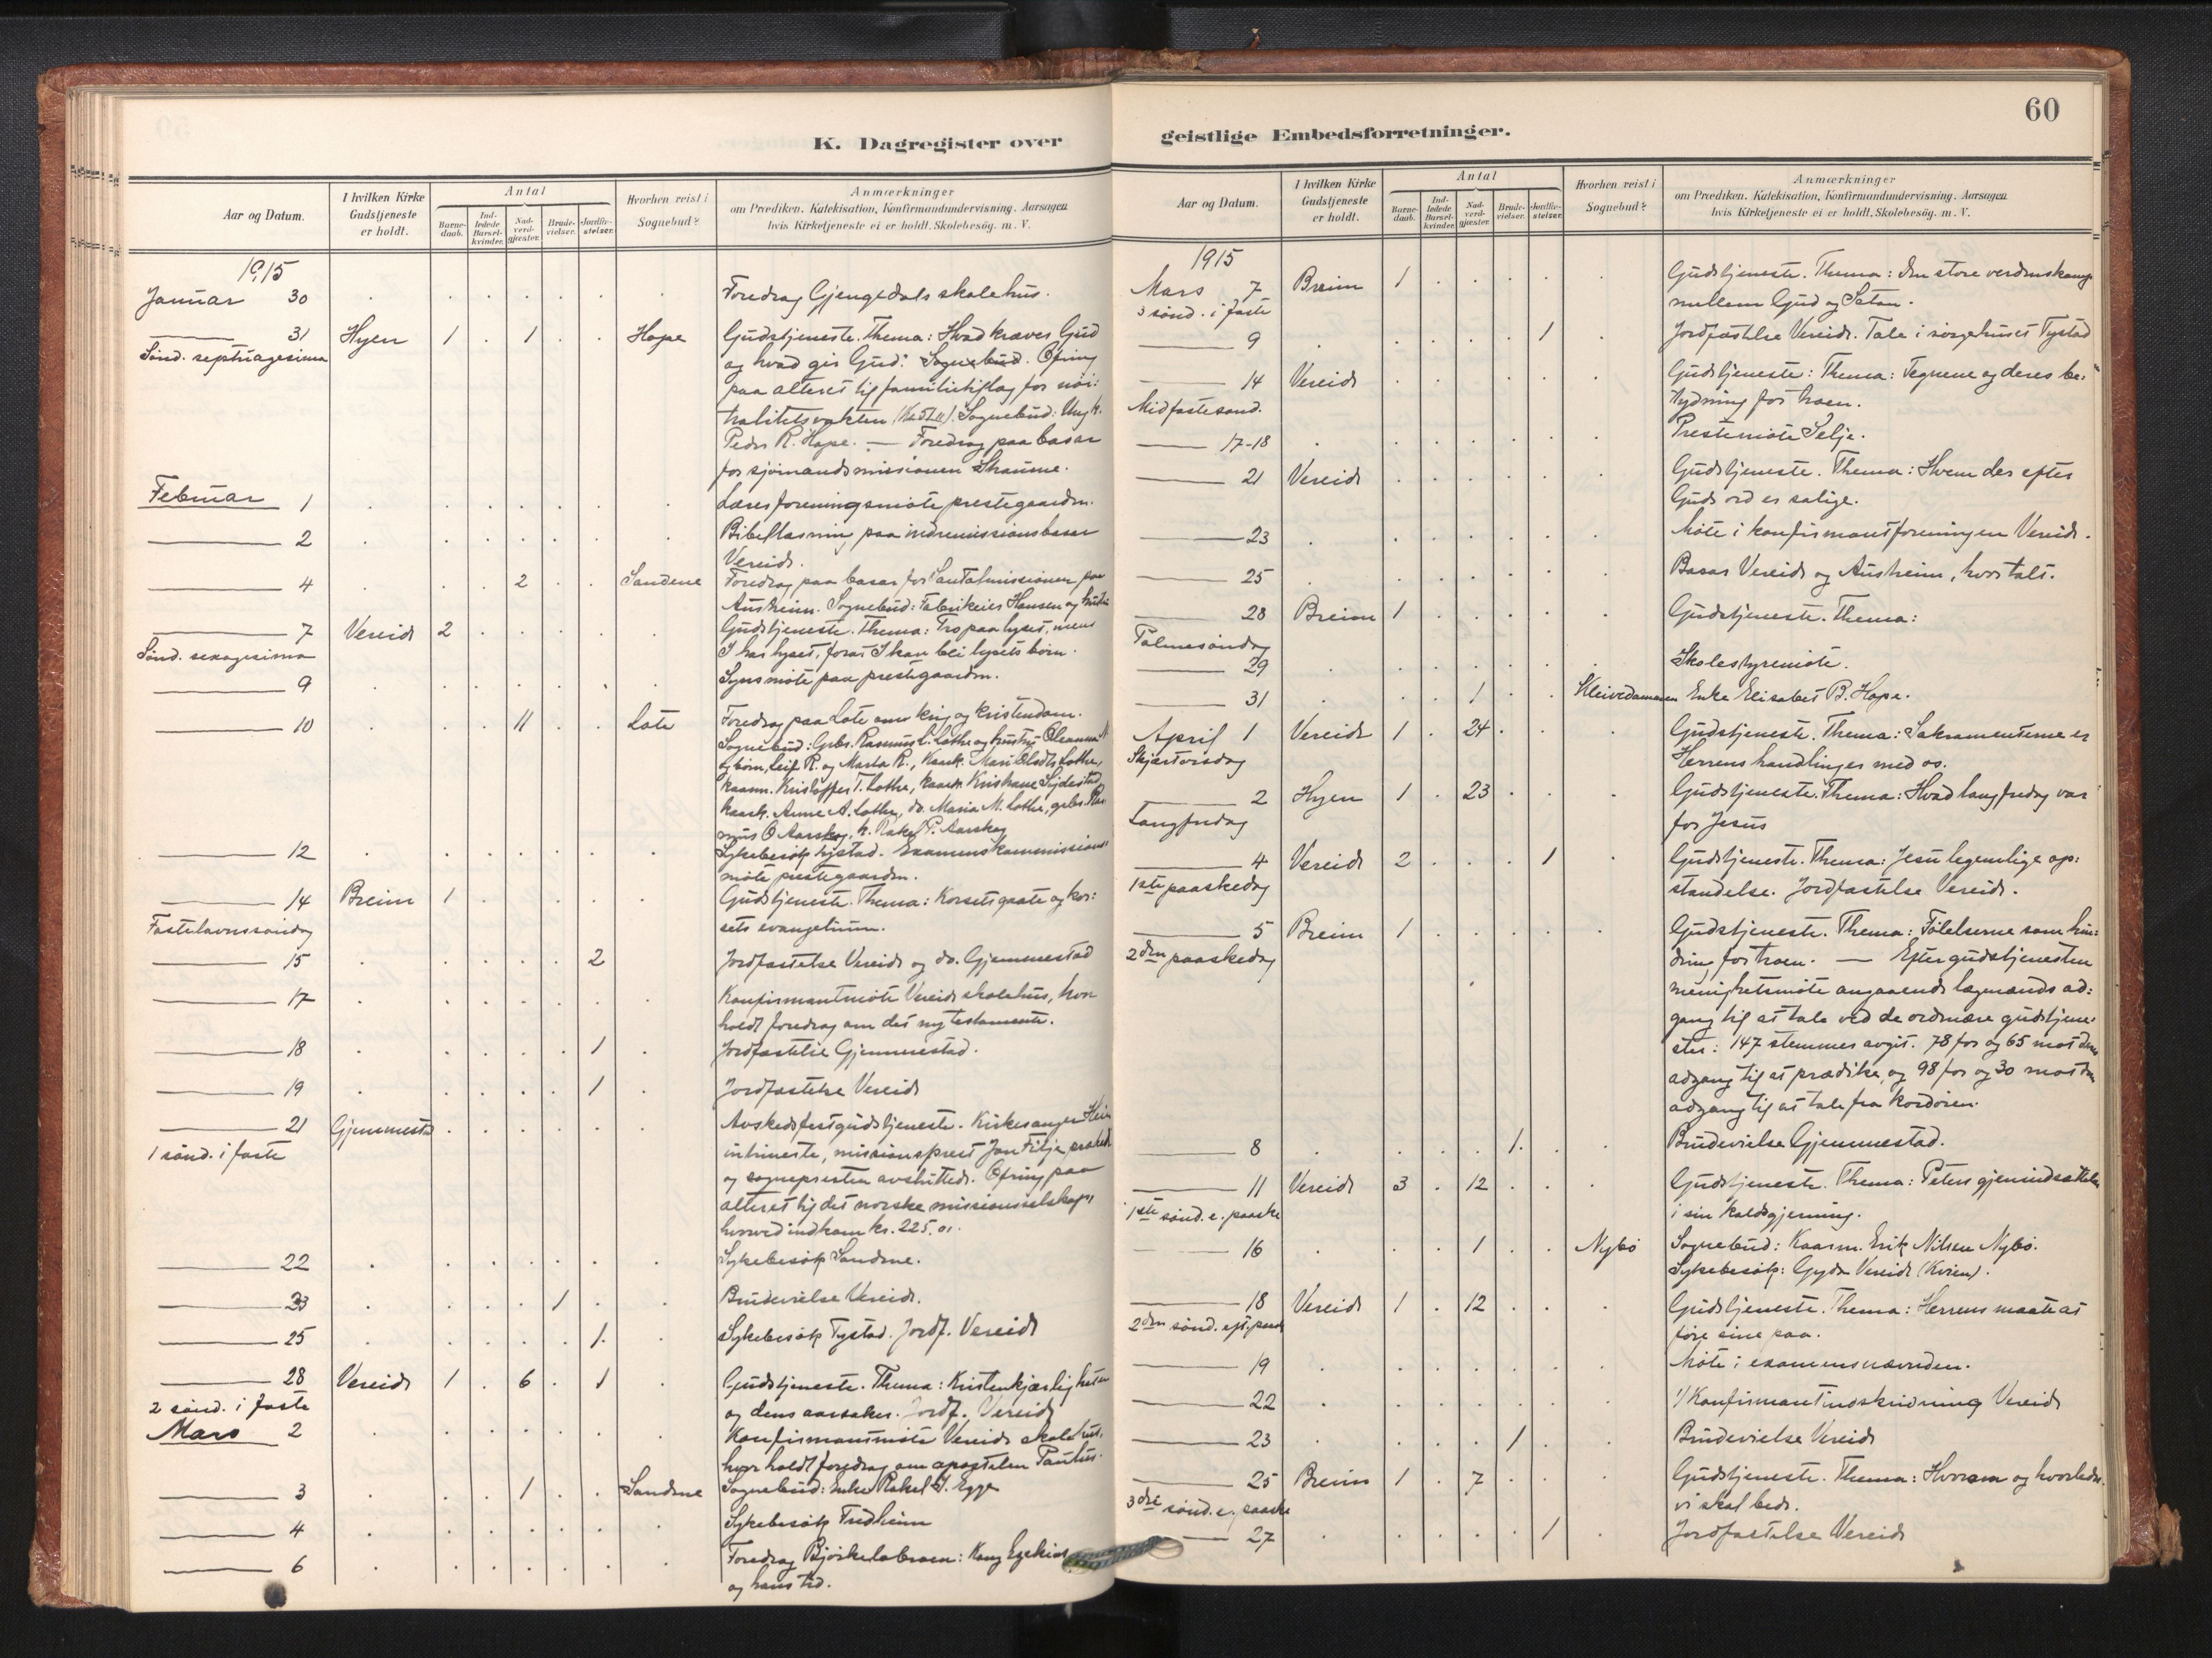 K. Dagregister over
Aar og Datum.
I hvilken Kirke Gudstjeneste er holdt.
Antal
Barne-daab.
Ind-ledede Barsel-kvinder.
Nad-verd-gjæster.
Brude-vielser.
Jordfæ-stelser.
Hvorhen reist i Sognebud?
Anmærkninger
om Prædiken, Katekisation, Konfirmandundervisning, Aarsagen
hvis Kirketjeneste ei er holdt. Skolebesøg. m. V.
1915
Januar 30 Foredrag Gjengedals skolehus.
31 Hyen 1 . 1 . . Hope Gudstjeneste. Thema: Hvad kræver Gud
Sønd. septuagesima og hvad gir Gud? Sognebud. Ofring
paa alteret til familietillag for nøi:
tralitetsvakten
Peder R. Hope. — Foredrag paa basar
for sjømandsmissionen Straume.
Februar 1 Lærerforeningsmøte prestegaarden.
2 Bibellæsning paa indremissionsbasar
Vereide.
4 2 Sandene Foredrag paa basar for Santalmissionen paa
Austrheim. Sognebud: Fabrikeier Hansen og hustru
7 Vereide 2 Gudstjeneste. Thema: Tro paa lyset, mens
Sønd. sexagesima I har lyset, forat I kan bli lysets børn.
9 Synsmøte paa prestegaarden.
10 11 Lote Foredrag paa Lote om krig og kristendom.
Sognebud: Gbr. Rasmus L. Lothe og hustru Oleanna
og børn, Leif R. og Marta R., Kaark. Mari Olsdtr Lothe,
kaarm. Kristoffer T. Lothe, kaark. Kristiane
kaark. Anne A. Lothe, do. Maria M. Lothe, gbr. Ras
mus O Aarskog, h. Rakel P. Aarskog
12 Sykebesøk Tystad. Examenskommissions
møte prestegaarden.
14 Breim 1 Gudstjeneste. Thema: Korsets gaate og kor:
Fastelavnssøndag sets evangelium.
15 2 Jordfæstelse Vereide og do. Gjemmestad
17 Konfirmantmøte Vereide skolehus, hvor
holdt foredrag om det ny testamente.
18 1 Jordfæstelse Gjemmestad.
19 1 Jordfæstelse Vereide
21 Gjemmestad Avskedsfestgudstjeneste. Kirkesanger Heim
1 sønd. i faste intimerte, missionsprest Jon Filje præked.
og sognepresten avsluttede. Ofring paa
alteret til det norske missionsselskap,
hvorved indkom kr. 225,01.
22 Sykebesøk Sandene.
23 1 Brudevielse Vereide.
25 1 Sykebesøk Tystad. Jordf. Vereide
28 Vereide 1 . 6 . 1 Gudstjeneste. Thema: Kristenkjærligheten
2 sønd. i faste og dens aarsaker. Jordf. Vereide
Mars 2 Konfirmantmøte Vereide skolehus,
hvor holdt foredrag om apostelen Paulus.
3 1 Sandene Sognebud: Enke Rakel J. Egge
4 Sykebesøk Fredheim
6 Foredrag Bjørkelobraaen: Kong Ezekias
og hans tid.
60
geistlige Embedsforretninger.
Aar og Datum.
I hvilken Kirke Gudstjeneste er holdt.
Antal
Barne-daab.
Ind-ledede Barsel-kvinder.
Nad-verd-gjæster.
Brude-vielser.
Jordfæ-stelser.
Hvorhen reist i Sognebud?
Anmærkninger
om Prædiken, Katekisation, Konfirmandundervisning, Aarsagen
hvis Kirketjeneste ei er holdt. Skolebesøg. m. V.
1915
Mars 7 Breim 1 Gudstjeneste. Thema: Den store verdenskamp
3 sønd. i faste mellem Gud og Satan.
9 1 Jordfæstelse Vereide. Tale i sørgehuset Tystad
14 Vereide Gudstjeneste: Thema: Tegnene og deres be:
Midfastesønd. tydning for troen.
17-18 Prestemøte Selje.
21 Vereide Gudstjeneste. Thema: Hvem der efter
Guds ord er salige.
23 Møte i konfirmantforeningen Vereide.
25 Basar Vereide og Austrheim, hvor talt.
28 Breim 1 Gudstjeneste. Thema:
Palmesøndag
29 Skolestyremøte.
31 1 Kleivedammen Enke Elisabet B. Hope.
April 1 Vereide 1 . 24 Gudstjeneste. Thema: Sakramenterne er
Skjærtorsdag Herrens handlinger med os.
2 Hyen 1 . 23 Gudstjeneste. Thema: Hvad langfredag var
Langfredag for Jesus
4 Vereide 2 . . . 1 Gudstjeneste. Thema: Jesu legemlige op:
1ste paaskedag standelse. Jordfæstelse Vereide.
5 Breim 1 Gudstjeneste. Thema: Følelserne som hin:
2den paaskedag dring for troen. — Efter gudstjenesten
menighetsmøte angaaende lægmænds ad:
gang til at tale ved de ordinære gudstjene:
ster: 147 stemmer avgit. 78 for og 65 mot deres
adgang til at prædike, og 98 for og 30 mot deres
adgang til at tale fra kordøren.
8 1 Brudevielse Gjemmestad.
11 Vereide 3 . 12 Gudstjeneste. Thema: Peters gjenindsættelse
1ste sønd. e. paaske i sin kaldsgjerning.
16 1 Nybø Sognebud: Kaarm. Erik Nilsen Nybø.
Sykebesøk: Gyda Vereide (Kvien).
18 Vereide 1 . 12 Gudstjeneste. Thema: Herrens maate at
2den sønd. eft. paaske føre sine paa.
19 Møte i examensnævnden.
22 1) Konfirmantindskrivning Vereide
23 1 Brudevielse Vereide
25 Breim 1 . 7 Gudstjeneste. Thema: Hvorom og hvorledes
3die sønd. e. paaske vi skal bede.
27 1 Jordfæstelse Vereide